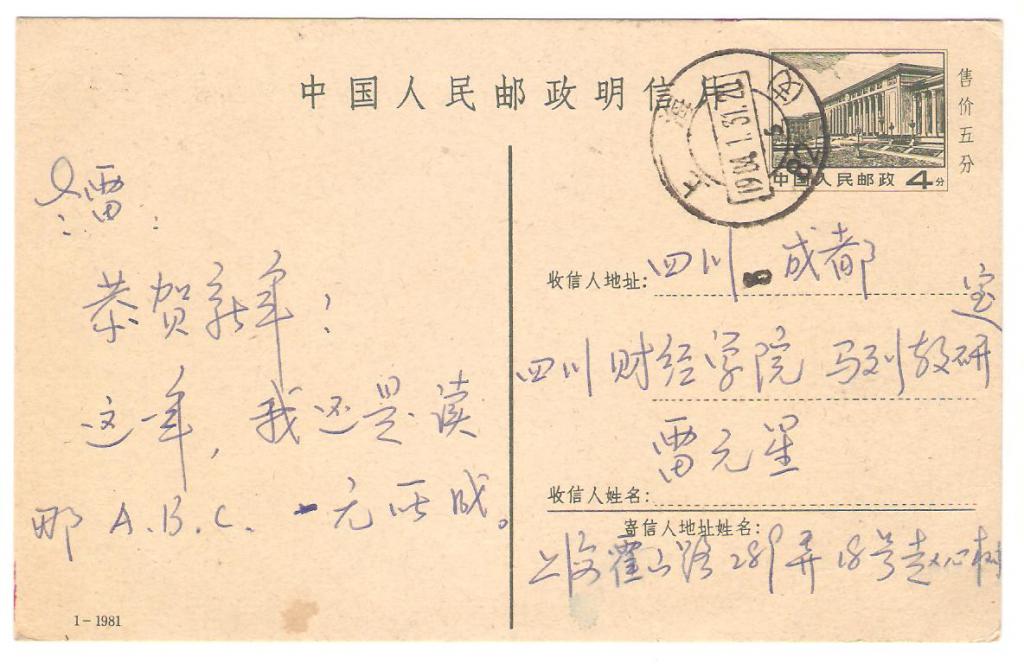 中国人民邮政明信片
售价五分
中国人民邮政 4分
上海
1984.1.31.12
82
雷:
恭贺新年!
这一年,我还是读
那A.B.C. 一无所成。
1-1981
收信人地址: 四川 成都
四川财经学院 马列教研室
雷元星
收信人姓名:
寄信人地址姓名:
上海霍山路289弄18号赵心树